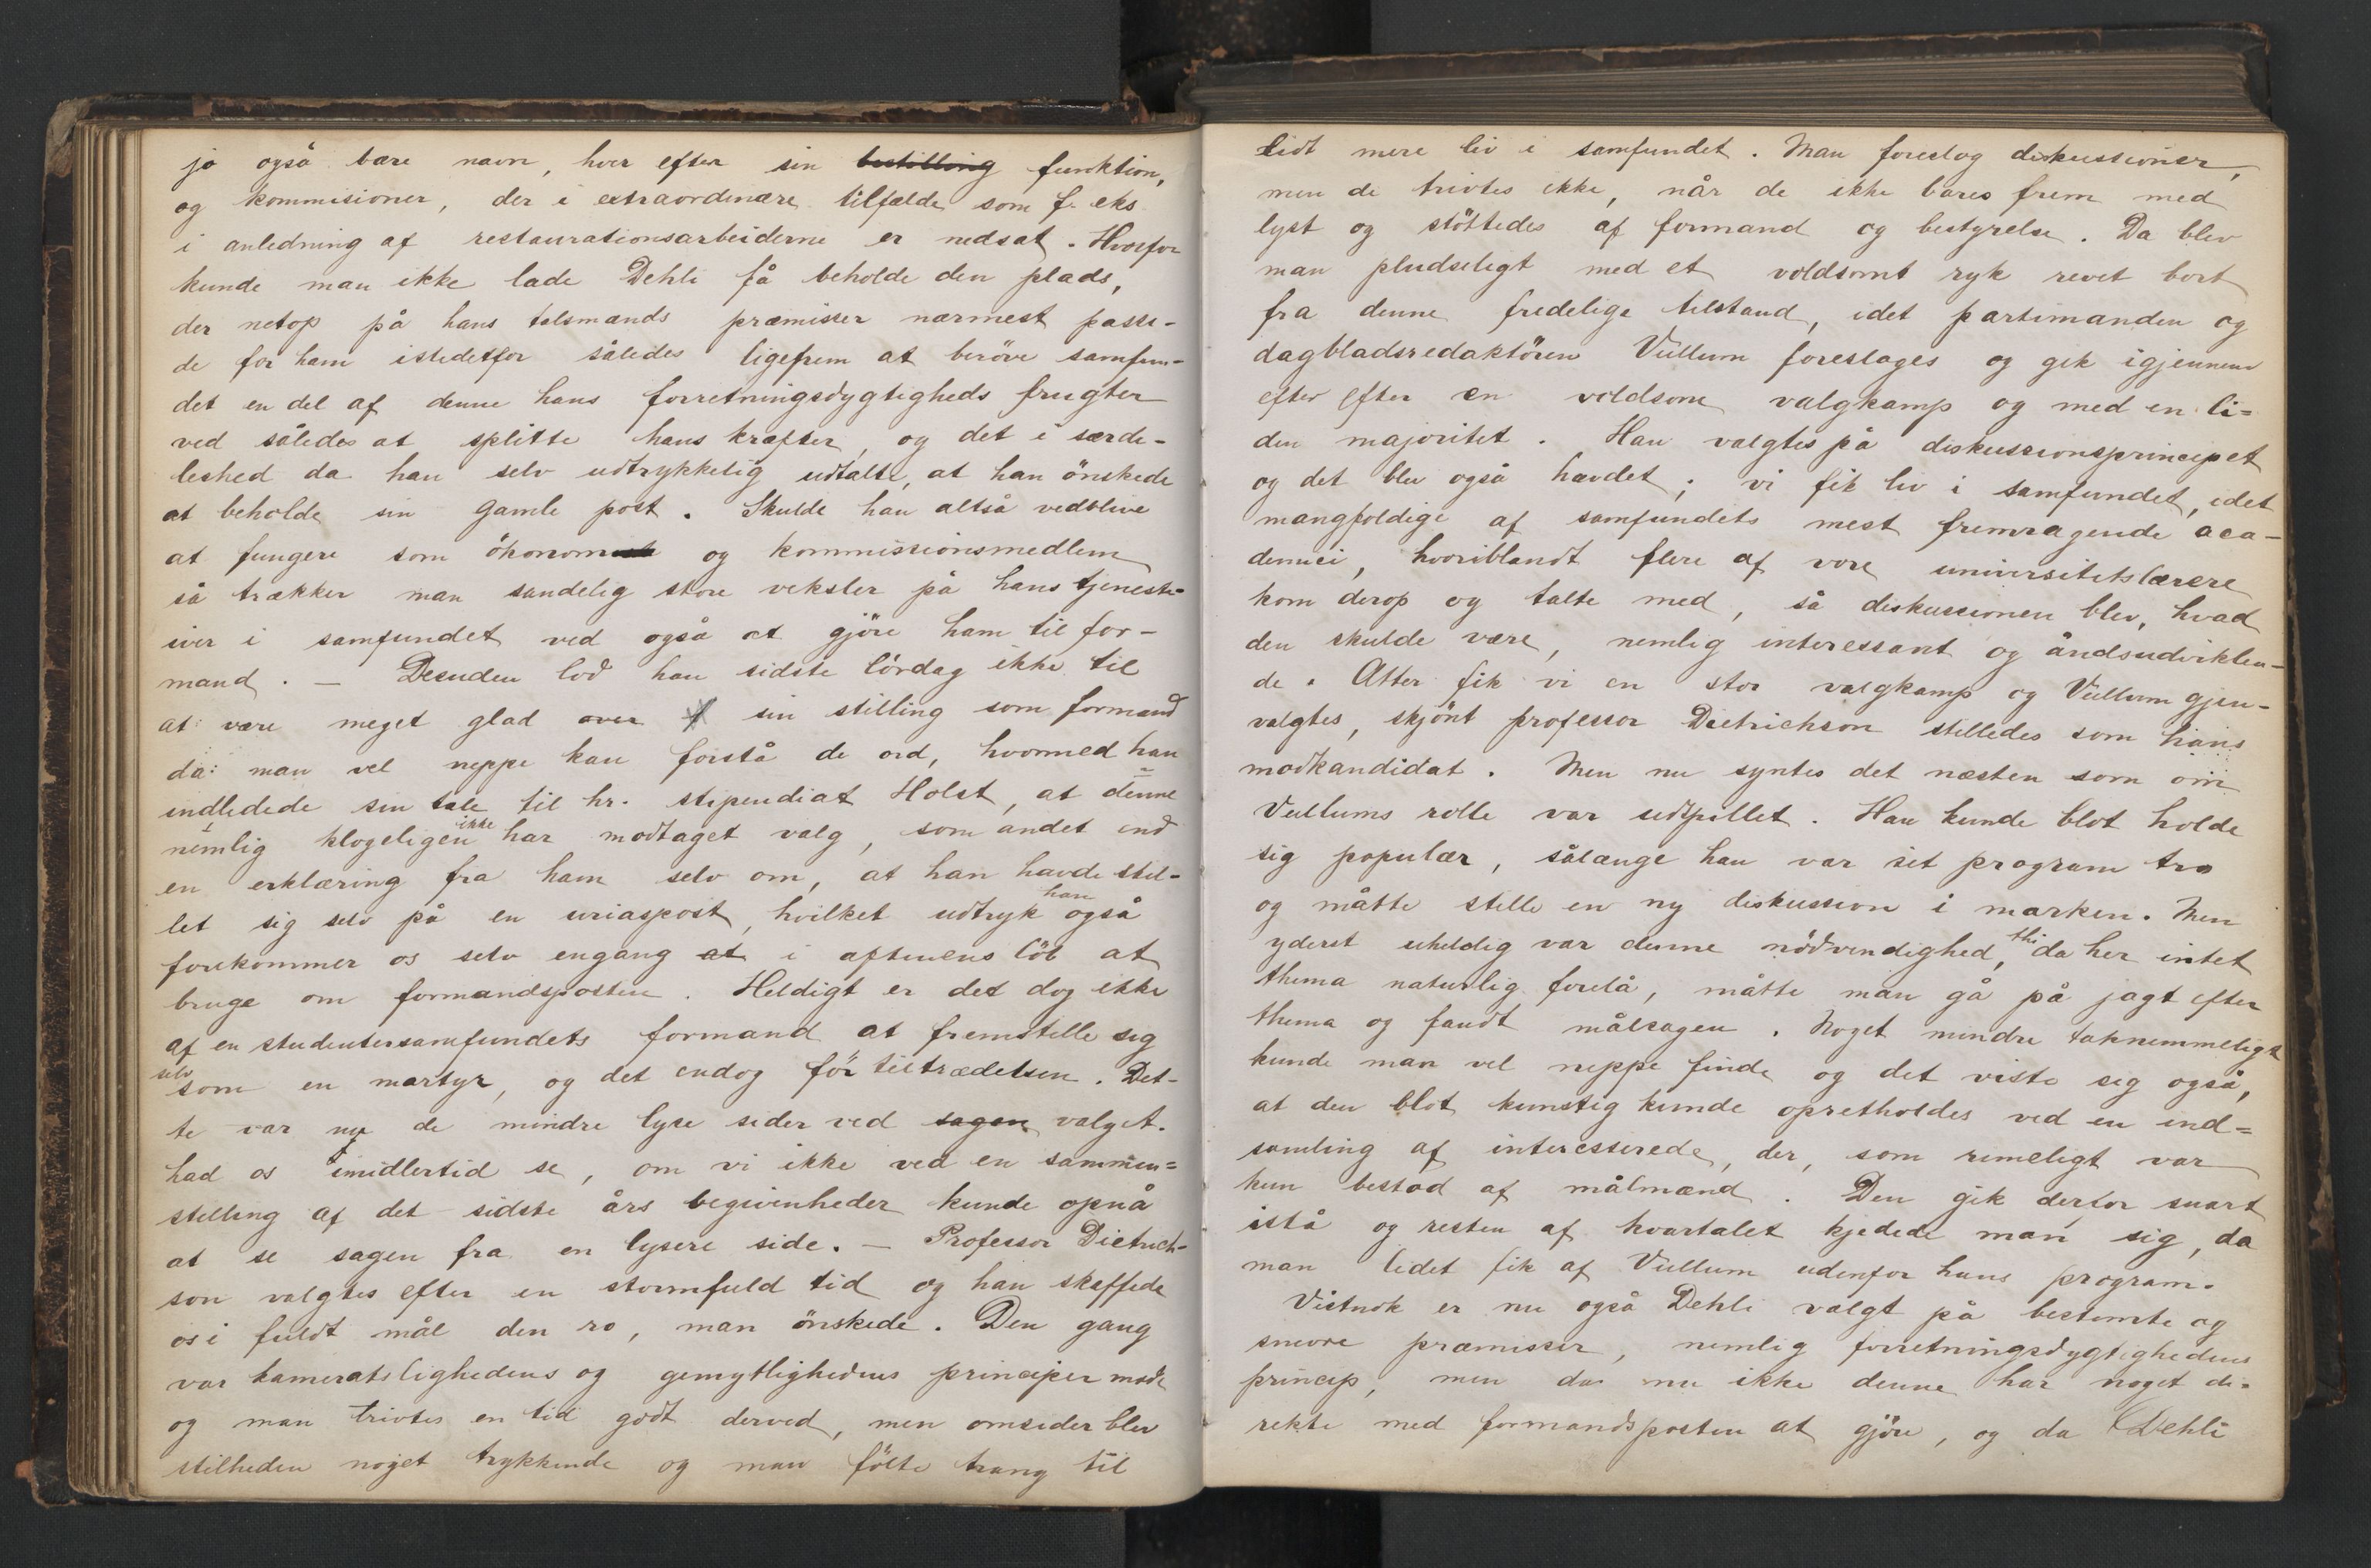 jo også bære navn, hver efter sin bestilling funktion,
og kommisioner, der i extraordinære tilfælde som f. eks
i anledning af restaurationsarbeiderne er nedsat. Hvorfor
kunde man ikke lade Dehli få beholde den plads,
der netop på hans talsmænds præmisser nærmest passe-
de for ham istedetfor således ligefrem at beröve samfun-
det en del af denne hans forretningsdygtigheds frugter
ved således at splitte hans kræfter, og det i særde-
leshed da han selv udtrykkelig udtalte, at han önskede
at beholde sin gamle post. Skulde han altså vedblive
at fungere som ökonom og kommissionsmedlem
så trækker man sandelig store veksler på hans tjeneste-
iver i samfundet ved også at gjöre ham til for-
mand. – Desuden lod han sidste lördag ikke til
at være meget glad over sin stilling som formand
da man vel neppe kan forstå de ord, hvormed han
indledede sin tale til hr. stipendiat Holst, at denne
nemlig klogeligen ikke har modtaget valg, som andet end
en erklæring fra ham selv om, at han havde stil-
let sig selv på en uriaspost, hvilket udtryk han også
forekommer os selv engang at i aftenens löb at
bruge om formandsposten. Heldigt er det dog ikke
af en studentersamfundets formand at fremstille sig
selv som en martyr, og det endog för tiltrædelsen. Det-
te var nu de mindre lyse sider ved sagen valget.
Lad os imidlertid se, om vi ikke ved en sammen=
stilling af det sidste års begivenheder kunde opnå
at se sagen fra en lysere side. – Professor Dietrich-
son valgtes efter en stormfuld tid og han skaffede
os i fuldt mål den ro, man önskede. Den gang
var kameratslighedens og gemytlighedens principer mode
og man trivtes en tid godt derved, men omsider blev
stilheden noget trykkende og man fölte trang til
lidt mere liv i samfundet. Man foreslog diskussioner,
men de trivtes ikke, når de ikke bares frem med
lyst og stöttedes af formand og bestyrelse. Da blev
man pludseligt med et voldsomt ryk revet bort
fra denne fredelige tilstand, idet partimanden og
dagbladsredaktören Vullum foresloges og gik igjennem
efter efter en voldsom valgkamp og med en li=
den majoritet. Han valgtes på diskussionsprincipet
og det blev også hævdet; vi fik liv i samfundet, idet
mangfoldige af samfundets mest fremragende aca-
demici, hvoriblandt flere af vore universitetslærere
kom derop og talte med, så diskussionen blev, hvad
den skulde være, nemlig interessant og åndsudviklen-
de. Atter fik vi en stor valgkamp og Vullum gjen-
valgtes, skjönt professor Dietrichson stilledes som hans
modkandidat. Men nu syntes det næsten som om
Vullums rolle var udspillet. Han kunde blot holde
sig populær, sålænge han var sit program tro
og måtte stille en ny diskussion i marken. Men
yderst uheldig var denne nödvendighed, thi da her intet
thema naturlig forelå, måtte man gå på jagt efter
thema og fandt målsagen. Noget mindre taknemmeligt
kunde man vel neppe finde og det viste sig også,
at den blot kunstig kunde opretholdes ved en ind=
samling af interesserede, der, som rimeligt var
kun bestod af målmænd. Den gik derfor snart
istå og resten af kvartalet kjedede man sig, da
man lidet fik af Vullum udenfor hans program.
Vistnok er nu også Dehli valgt på bestemte og
snevre præmisser, nemlig forretningsdygtighedens
princip, men da nu ikke denne har noget di=
rekte med formandsposten at gjöre, og da Dehli